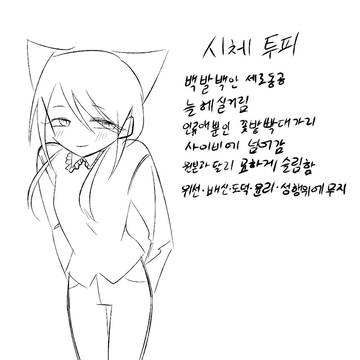 시체 투피
백발백안 세로동공
늘 헤실거림
인류애뿐인 꽃밭 빡대가리
사이비에 넘어감
원본과 달리 묘하게 슬림함
위선·배신·도덕·윤리·성행위에 무지